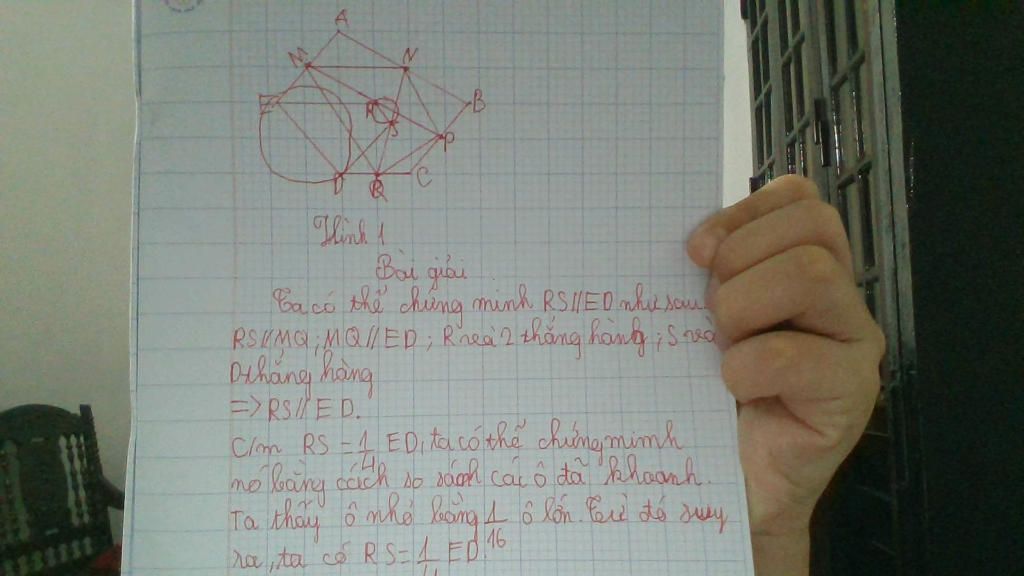 A
M
N
E
R
B
S
P
D
Q
C
Hình 1
Bài giải
Ta có thể chứng minh RS//ED như sau
RS//MQ; MQ//ED; R và 2 thẳng hàng; S và
D thẳng hàng
=> RS//ED.
C/m RS = 1/4 ED, ta có thể chứng minh
nó bằng cách so sánh các ô đã khoanh.
Ta thấy ô nhỏ bằng 1/16 ô lớn. Từ đó suy
ra, ta có RS = 1/4 ED.